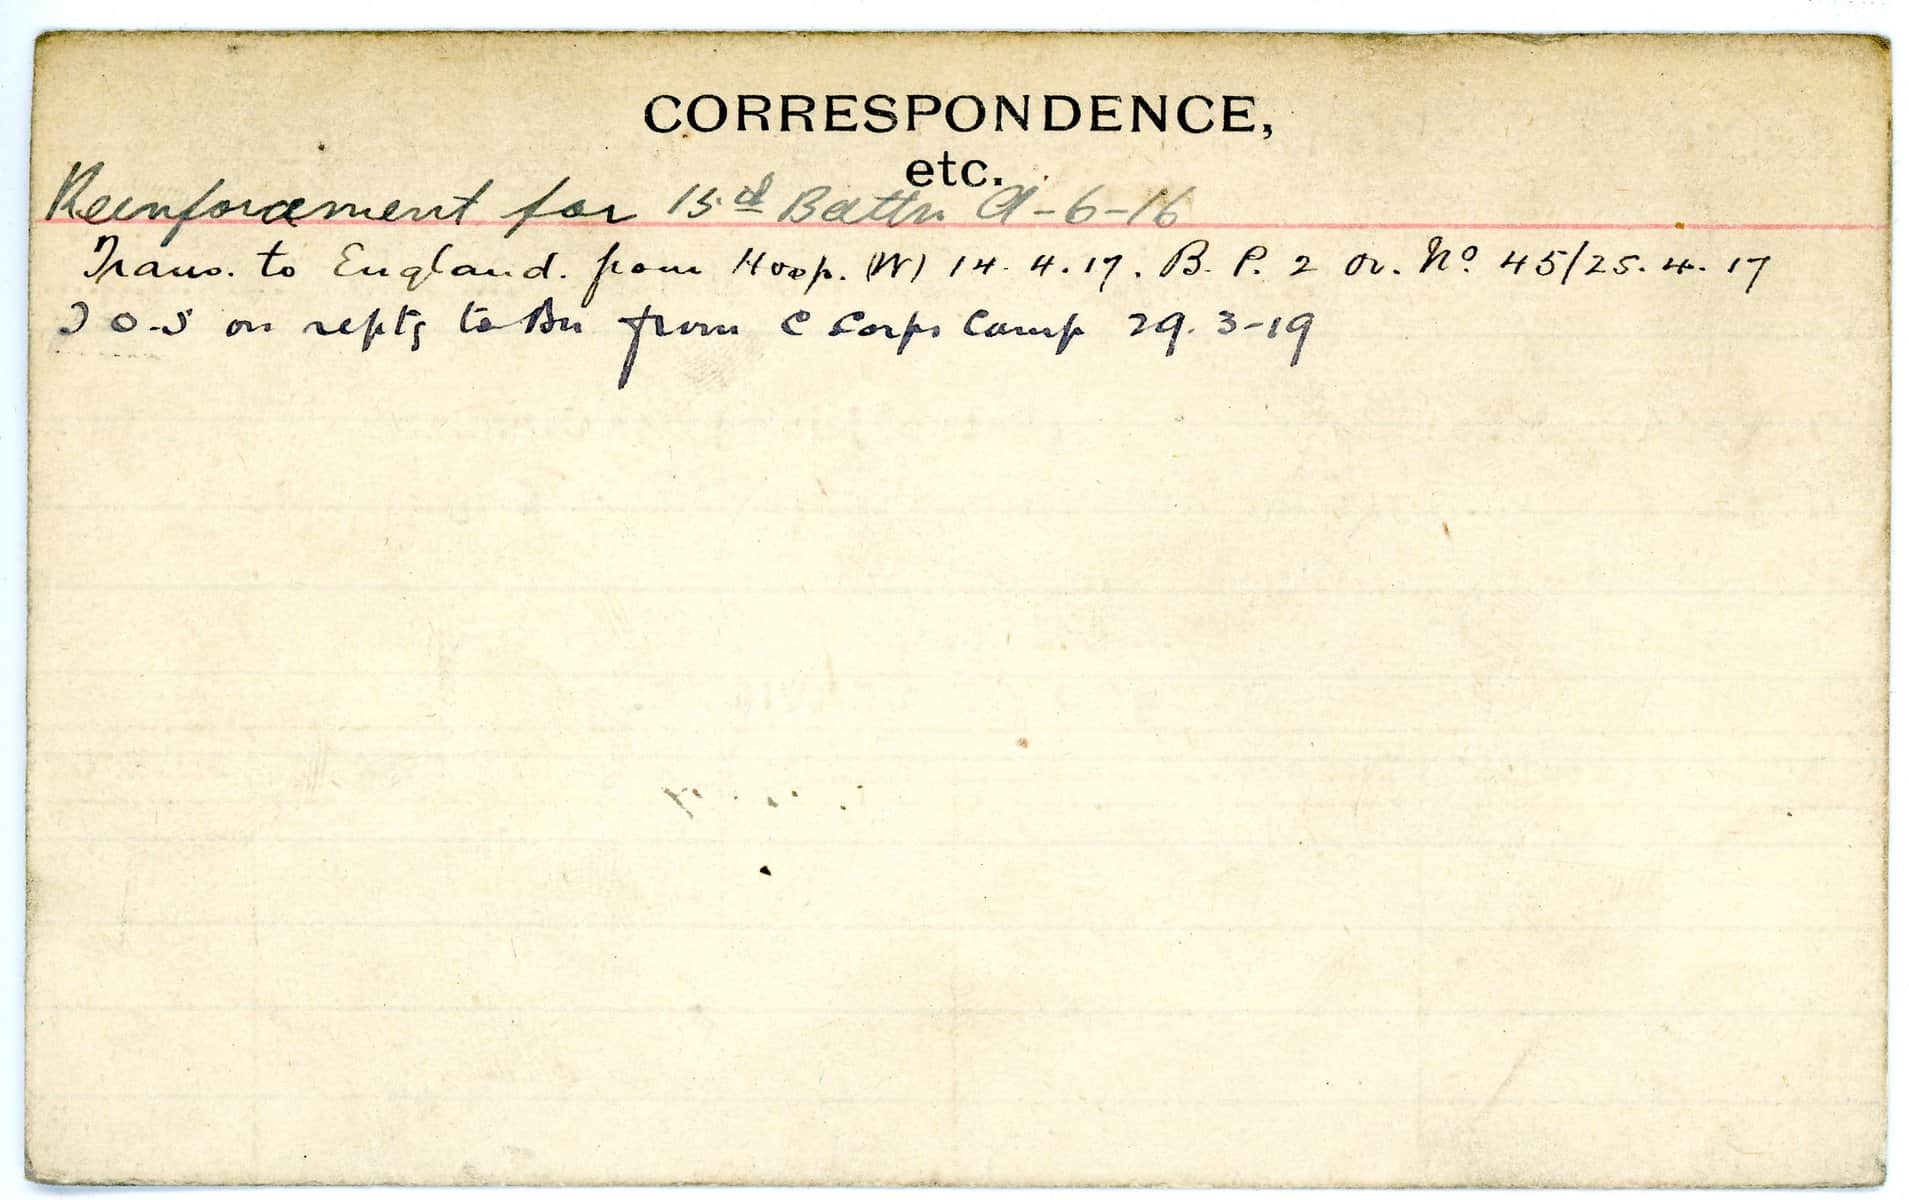 CORRESPONDENCE,
etc.
Reinforcement for 15th Battn 9-6-16
Trans. to England. from Hosp. (W) 14.4.17. B. P. 2 Or. No 45/25.4.17
T O-S on reptg to Bn from C Corps Camp 29.3-19